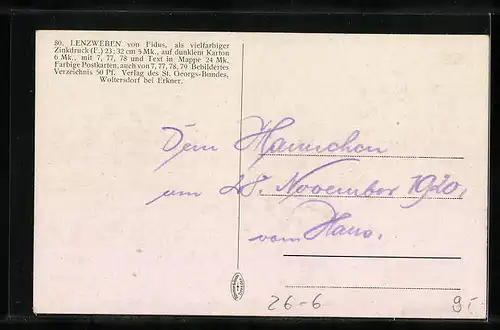 80. LENZWEBEN von Fidus, als vielfarbiger
Zinkdruck (F.) 23:32 cm 5 Mk., auf dunklem Karton
6 Mk., mit 7, 77, 78 und Text in Mappe 24 Mk.
Farbige Postkarten, auch von 7, 77, 78, 79 Bebildertes
Verzeichnis 50 Pf. Verlag des St. Georgs-Bundes,
Woltersdorf bei Erkner.
Dem Hannchen
am 28. November 1920,
vom Hans.
26-6
9.-